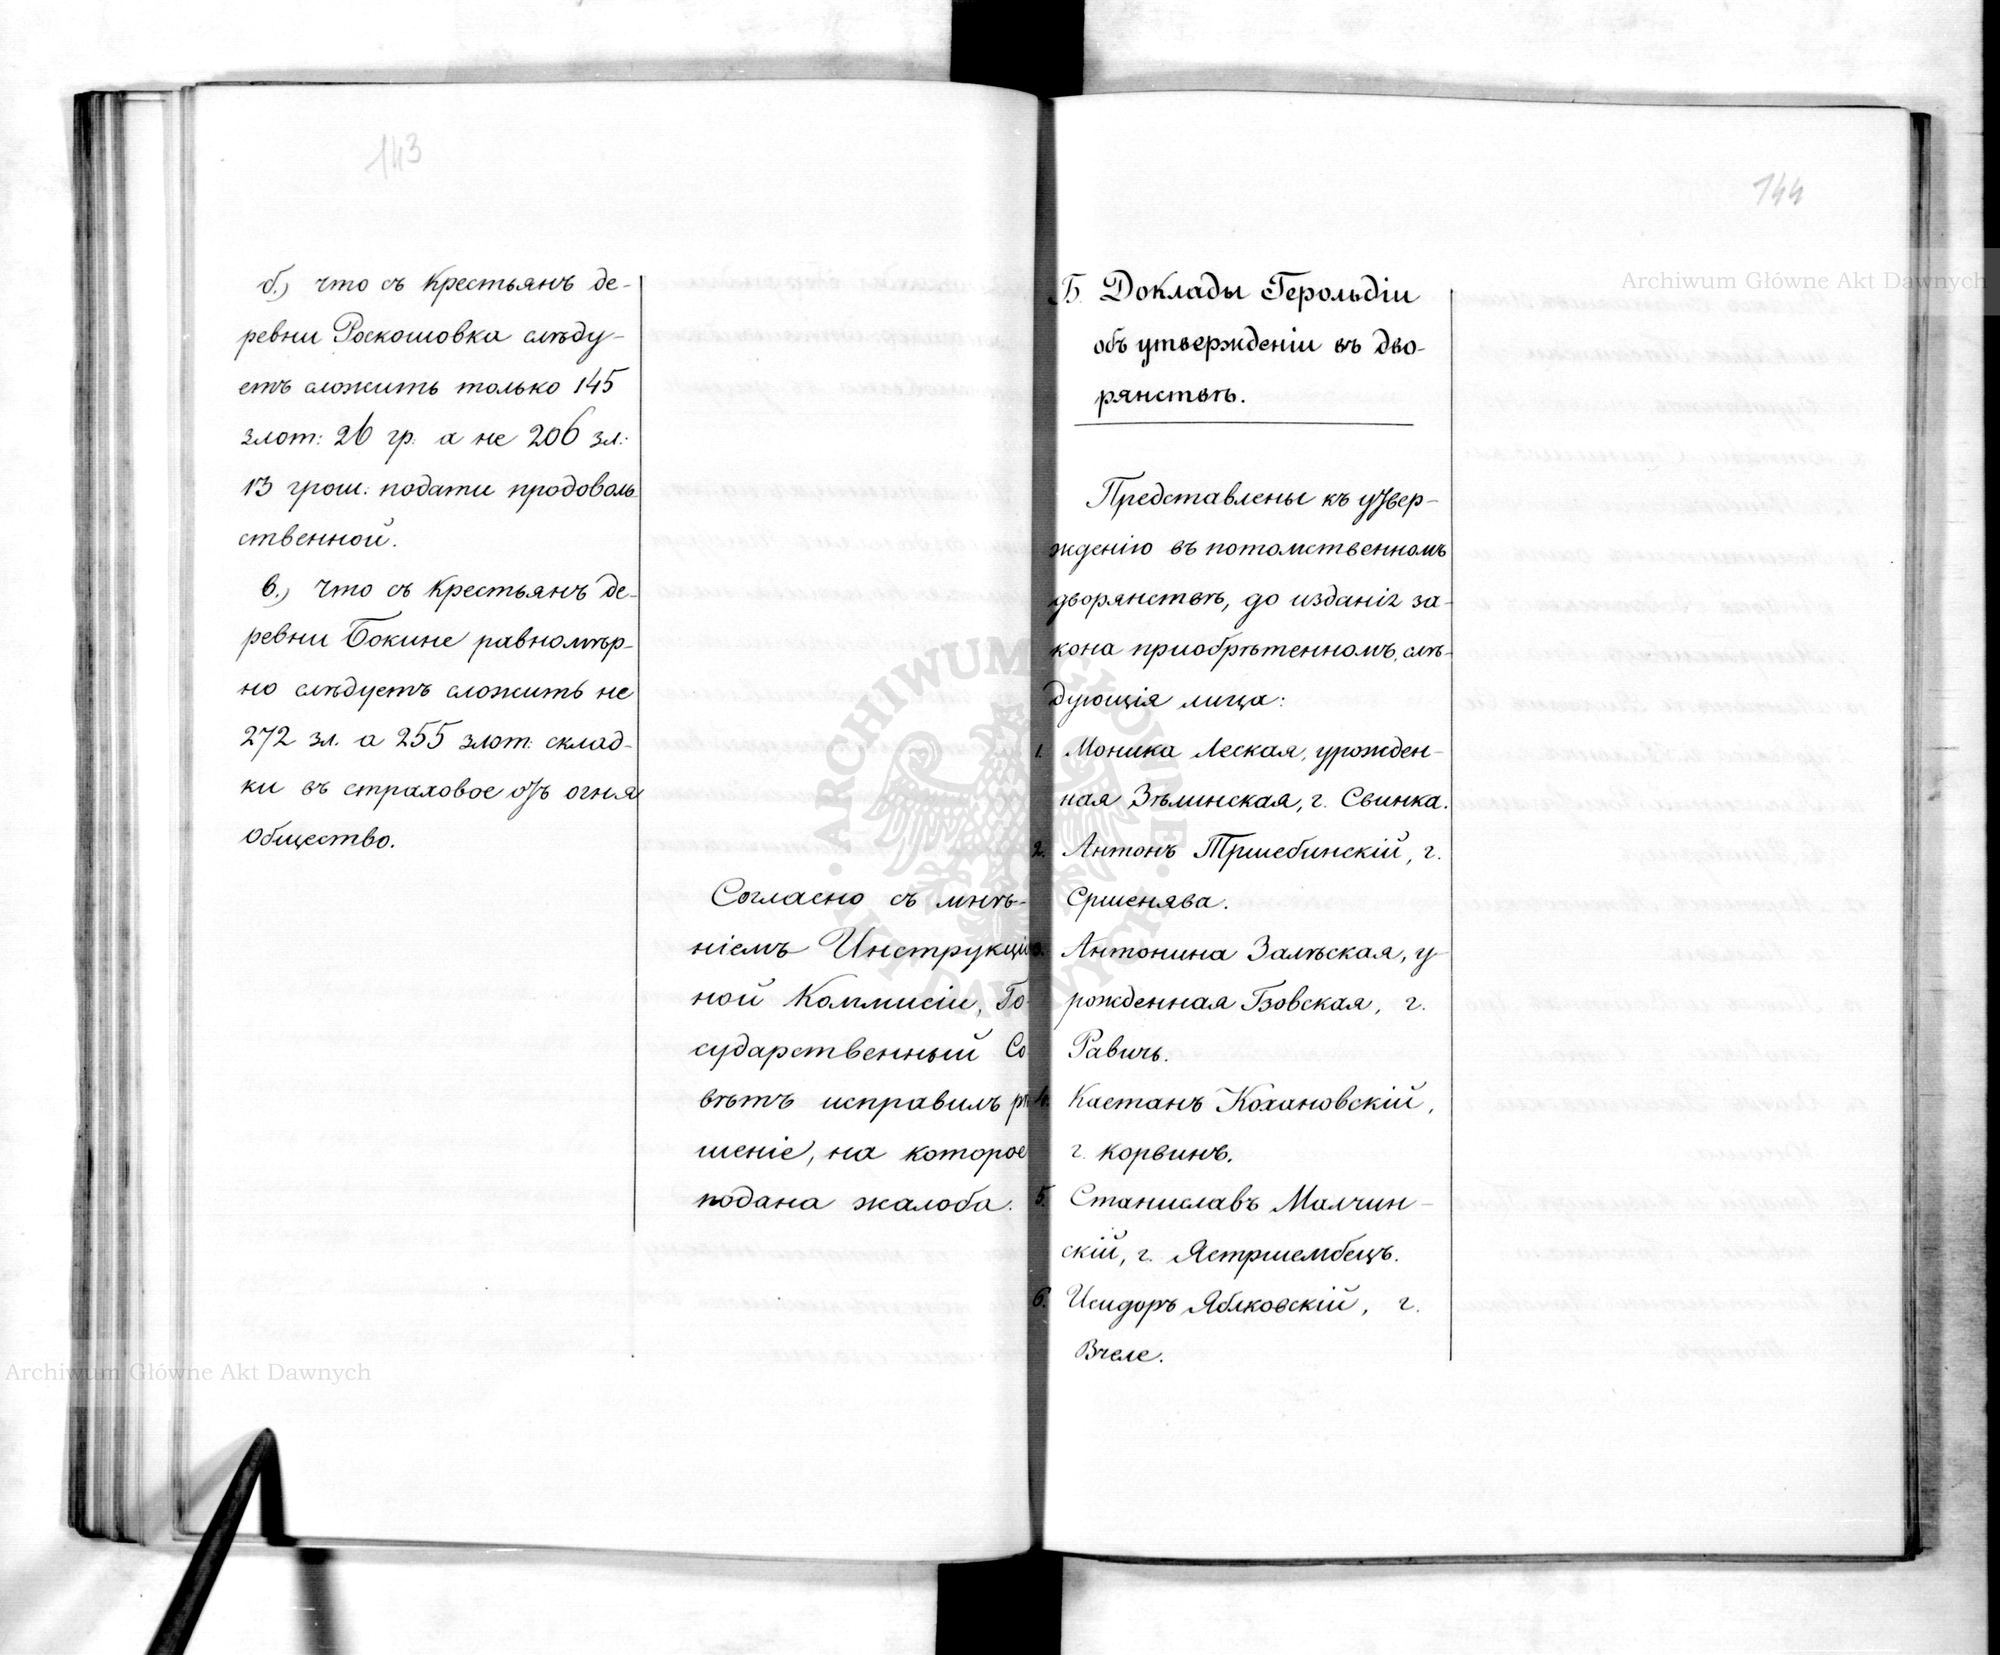 143
б.) что съ крестьянъ де-
ревни Роскошовка слѣду-
етъ сложить только 145
злот: 26 гр. а не 206 зл:
13 грош: подати продоволь
ственной.
в.) что съ крестьянъ де-
ревни Бокине равномѣр-
но слѣдуетъ сложить не
272 зл. а 255 злот: склад-
ки въ страховое отъ огня
общество.
Согласно съ мнѣ-
ніемъ Инструкціо
ной Коммисіи, Го-
сударственный Со
вѣтъ исправилъ рѣ
шеніе, на которое
подана жалоба.
144
Б. Доклады Герольдіи
объ утвержденіи въ дво-
рянствѣ.
Представлены къ утвер-
жденію въ потомственномъ
дворянствѣ, до изданія за-
кона пріобрѣтенномъ, слѣ-
дующія лица:
1. Моника Леская, урожден-
ная Зѣлинская, г. Свинка.
2. Антонъ Тршебинскій, г.
Сршенява.
3. Антонина Залѣская, у-
рожденная Гзовская, г.
Равичъ.
4. Каетанъ Кохановскій,
г. Корвинъ.
5. Станиславъ Малчин-
скій, г. Ястршембецъ.
6. Исидоръ Яблковскій, г.
Вчеле.
Archiwum Główne Akt Dawnych
Archiwum Główne Akt Dawnych
ARCHIWUM GŁÓWNE AKT DAWNYCH